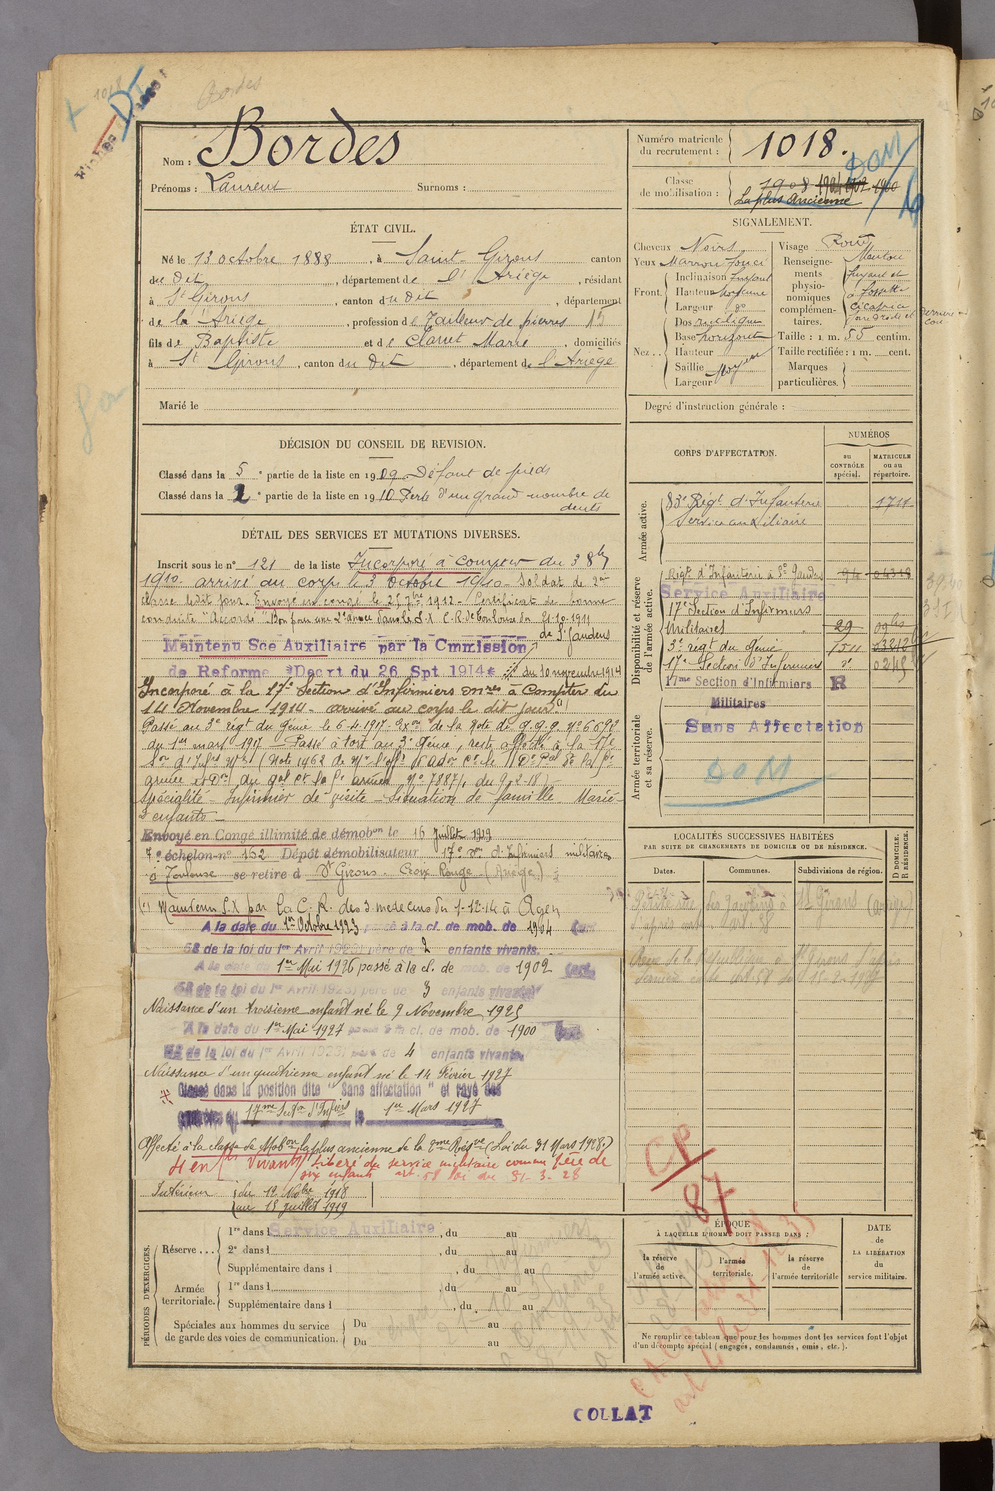 Bordes
Nom : Bordes
Prénoms : Laurent Surnoms :
Numéro matricule du recrutement : 1018.
Classe de mobilisation : 1908 1904 1902 1900
La plus Ancienne
ÉTAT CIVIL.
Né le 13 octobre 1888, à Saint-Girons canton
du Dit, département de l'Ariège, résidant
à St Girons, canton du Dit, département
de la Ariège, profession de Tailleur de pierres
fils de Baptiste et de Claret Marie, domiciliés
à St Girons, canton du Dit, département de l'Ariège
Marié le
SIGNALEMENT.
Cheveux Noirs
Yeux Marron foncé
Front. Inclinaison fuyant
Hauteur moyenne
Largeur do
Nez.. Dos rectiligne
Base horizont
Hauteur
Saillie Moyen
Largeur
Visage Rond
Renseignements physionomiques complémentaires. Menton
fuyant et
à fossette
Cicatrice
Taille : 1 m. 55 centim.
Taille rectifiée : 1 m. cent.
Marques particulières.
Degré d'instruction générale :
DÉCISION DU CONSEIL DE REVISION.
Classé dans la 5e partie de la liste en 1909 Défaut de pieds
Classé dans la 2e partie de la liste en 1910 Perte d'un grand nombre de
dents
DÉTAIL DES SERVICES ET MUTATIONS DIVERSES.
Inscrit sous le no 121 de la liste Incorporé à compter du 3 8bre
1910 arrivé au corps le 3 Octobre 1910 - Soldat de 2me
classe ledit jour. Envoyé en congé le 25 7bre 1912 - Certificat de bonne
conduite "Accordé" Bon pour une 2e année dans le S.X C.R. de Toulouse du 21-10-1911
de St Gaudens
Maintenu Sce Auxiliaire par la Cmmission
de Reforme *Decrt du 26 Spt 1914* du 10 novembre 1914
Incorporé à la 17e Section d'Infirmiers mres à Compter du
14 Novembre 1914 - arrivé au corps le dit jour.
Passé au 3e régt du Génie le 6-4-1917 - de la Note du G.Q.G. No 6692
du 1er mars 1917 - Passé à tort au 3e Génie, reste affecté à la 17e
Spécialité - Infirmier de visite - Situation de famille Marié
2 enfants
Envoyé en Congé illimité de démobon le 16 Juillet 1919
7e échelon no 162 Dépôt démobilisateur 17e son d'Infirmiers militaires
à Toulouse se retire à St Girons - Croix Rouge (Ariège)
Maintenu S.X par la C.R. des 3 médecins du 1-12-14 à Agen
A la date du 1er Octobre 1923 passé à la cl. de mob. de 1904
58 de la loi du 1er Avril 1923) père de 2 enfants vivants.
A la date du 1er Mai 1926 passé à la cl. de mob. de 1902
58 de la loi du 1er Avril 1923) père de 3 enfants vivants
Naissance d'un troisième enfant né le 9 Novembre 1925
A la date du 1er Mai 1927 passé à la cl. de mob. de 1900
58 de la loi du 1er Avril 1923) père de 4 enfants vivants
Naissance d'un quatrième enfant né le 14 Février 1927
Classé dans la position dite "Sans affectation" et rayé des
contrôles du 17me Seon d'Infiers le 1er Mars 1927
Affecté à la classe de Mobon la plus ancienne de la 2me Résve (Loi du 31 Mars 1928)
Libéré du service militaire comme père de
six enfants art. 58 loi du 31-3-28
Intérieur du 12 Nobre 1918
au 15 juillet 1919
CORPS D'AFFECTATION.
NUMÉROS
au CONTRÔLE spécial.
MATRICULE ou au répertoire.
Armée active.
83e Régt d'Infanterie 1711
Service auxiliaire
Disponibilité et réserve de l'armée active.
Régt d'Infanterie à St Gaudens
Service Auxiliaire
17e Section d'Infirmiers
Militaires 29
3e régt du Génie 1511
17e Section d'Infirmiers do
17me Section d'Infirmiers R
Militaires
Armée territoriale et sa réserve.
Sans Affectation
DOM
LOCALITÉS SUCCESSIVES HABITÉES
PAR SUITE DE CHANGEMENTS DE DOMICILE OU DE RÉSIDENCE.
Dates.
Communes.
Subdivisions de région.
D DOMICILE. R RÉSIDENCE.
CP
87
PÉRIODES D'EXERCICES.
Réserve... 1re dans l Service Auxiliaire, du au
2e dans l , du au
Supplémentaire dans l , du au
Armée territoriale. 1re dans l , du au
Supplémentaire dans l , du au
Spéciales aux hommes du service de garde des voies de communication. Du au
Du au
ÉPOQUE
À LAQUELLE L'HOMME DOIT PASSER DANS :
la réserve de l'armée active.
l'armée territoriale.
la réserve de l'armée territoriale
DATE de LA LIBÉRATION du service militaire.
Ne remplir ce tableau que pour les hommes dont les services font l'objet
d'un décompte spécial (engagés, condamnés, omis, etc.).
COLLAT